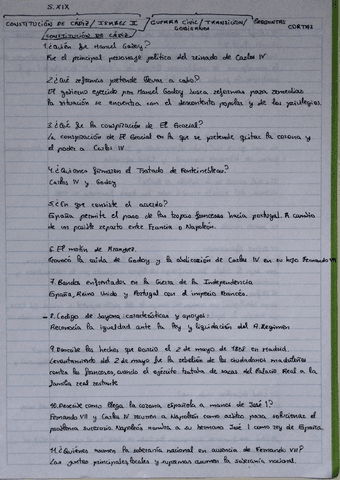 S. XIX
CONSTITUCIÓN DE CÁDIZ / ISABEL II / GUERRA CIVIL / TRANSICIÓN / PREGUNTAS CORTAS
CONSTITUCIÓN DE CÁDIZ
1. ¿Quién fue Manuel Godoy?
Fue el principal personaje político del reinado de Carlos IV
2. ¿Qué reformas pretende llevar a cabo?
El gobierno ejercido por Manuel Godoy busca reformas para remediar
la situación se encuentra con el descontento popular y de los privilegios.
3. ¿Qué fue la conspiración de El Escorial?
La conspiración de El Escorial en la que se pretende quitar la corona y
el poder a Carlos IV.
4. ¿Quiénes firmaron el Tratado de Fontainebleau?
Carlos IV y Godoy
5. ¿En que consiste el acuerdo?
España permite el paso de las tropas francesas hacia portugal. A cambio
de un posible reparto entre Francia o Napoleón.
6. El motín de Aranjuez.
Provocó la caída de Godoy y la abdicación de Carlos IV en su hijo Fernando VII
7. Bandos enfrentados en la Guerra de la Independencia
España, Reino Unido y Portugal con el imperio Francés.
8. Codigo de Bayona: características y apoyos:
Reconocía la igualdad ante la ley y liquidación del A. Regimen
9. Describe los hechos que ocurrió el 2 de mayo de 1808 en madrid.
Levantamiento del 2 de mayo fue la rebelión de los ciudadanos madrileños
contra los franceses, cuando el ejército trataba de sacar del Palacio Real a la
familia real restante
10. Describe como llega la corona Española a manos de José I?
Fernando VII y Carlos IV recurren a Napoleón como arbitro para solucionar el
problema sucesorio Napoleón nombra a su hermano José I como rey de España.
11. ¿Quiénes asumen la soberanía nacional en ausencia de Fernando VII?
Las juntas principales, locales y supremas asumen la soberanía nacional.